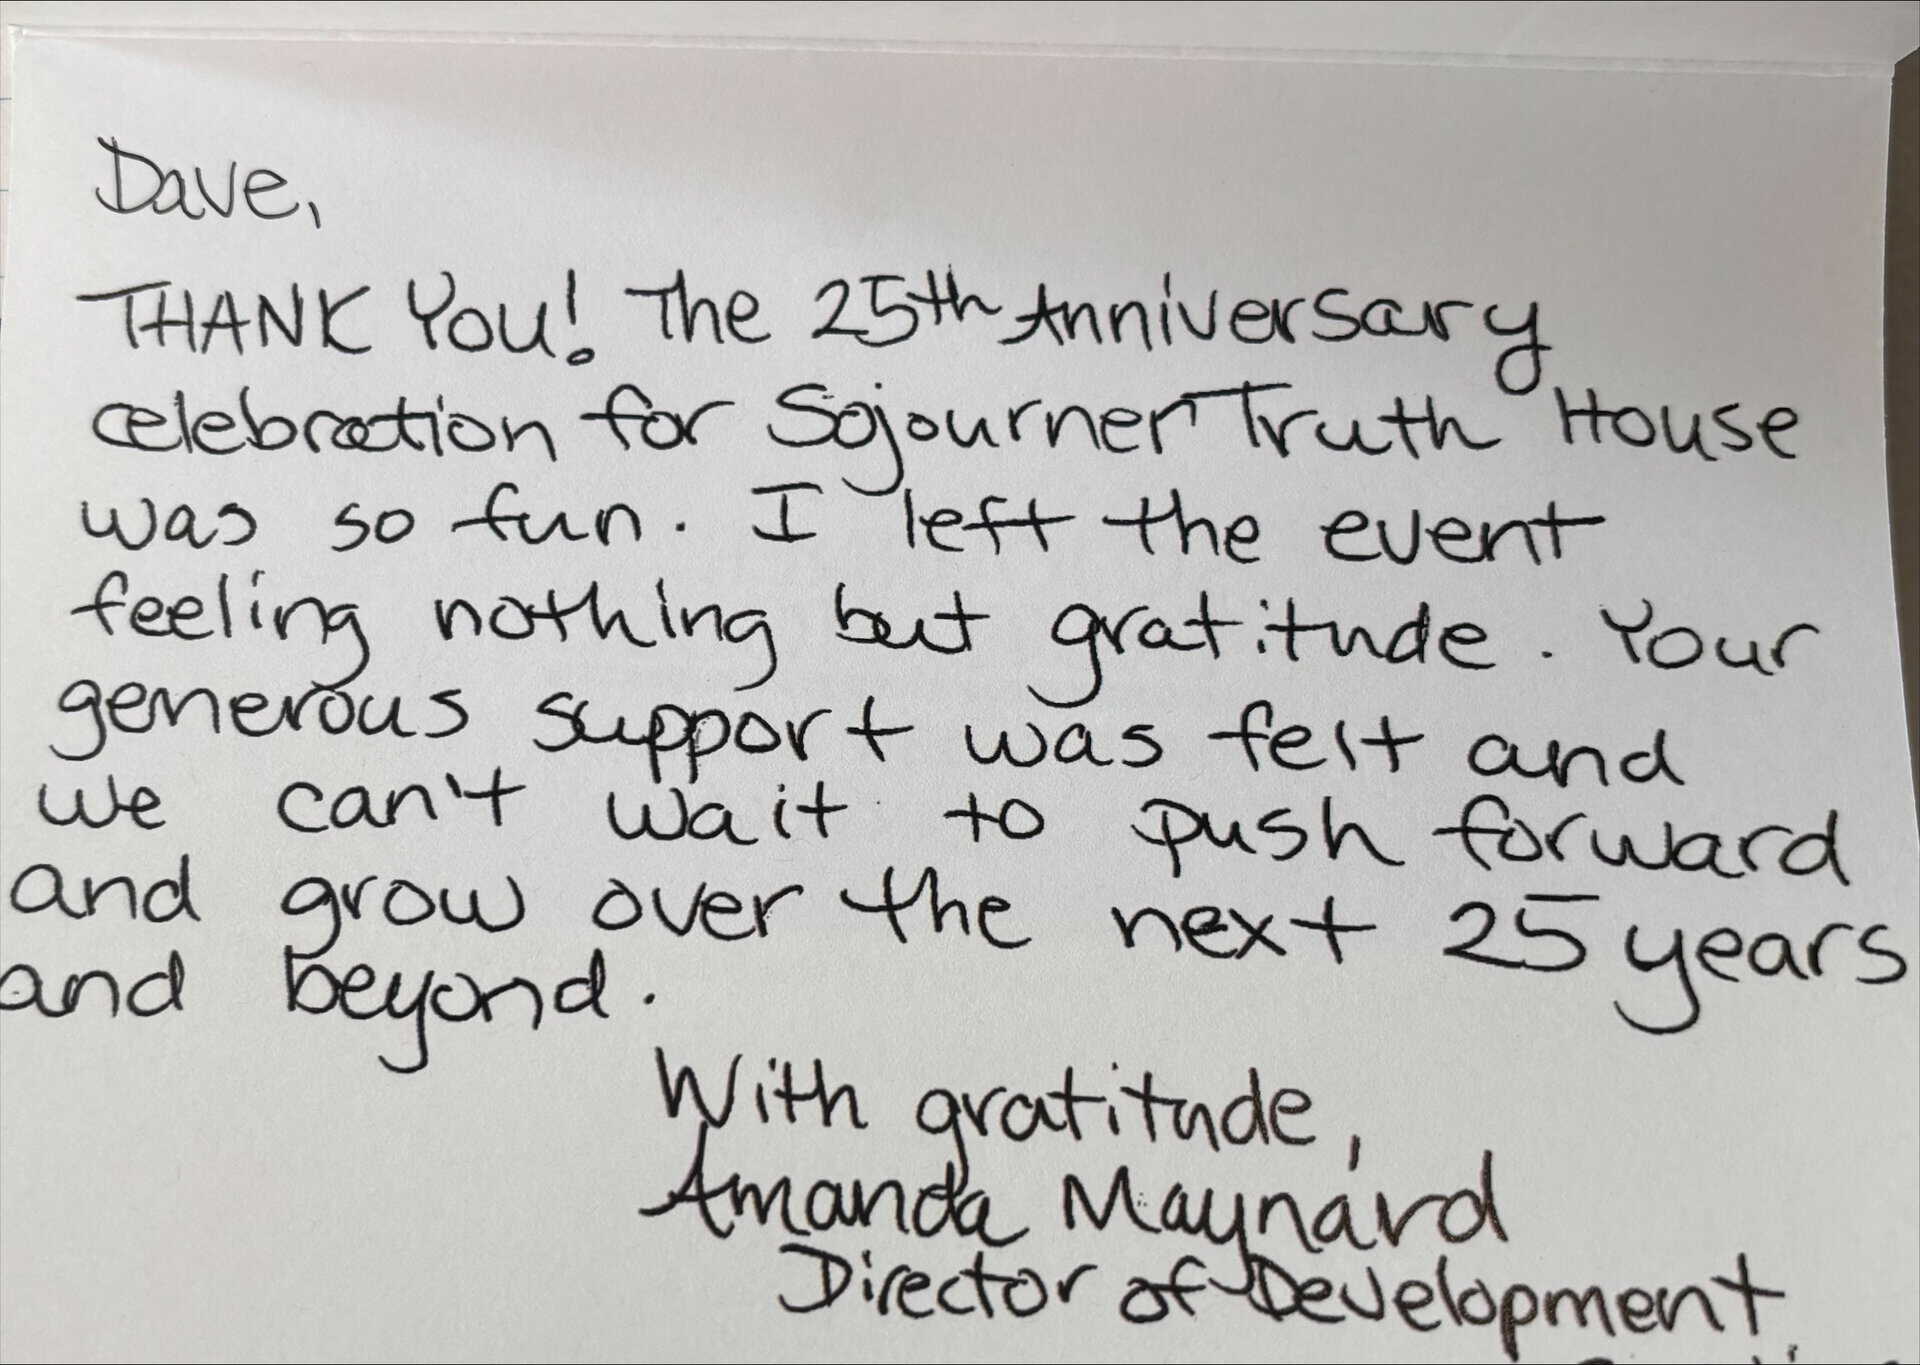 Dave,
THANK You! The 25th Anniversary
celebration for Sojourner Truth House
was so fun. I left the event
feeling nothing but gratitude. Your
generous support was felt and
we can't wait to push forward
and grow over the next 25 years
and beyond.
With gratitude,
Amanda Maynard
Director of Development